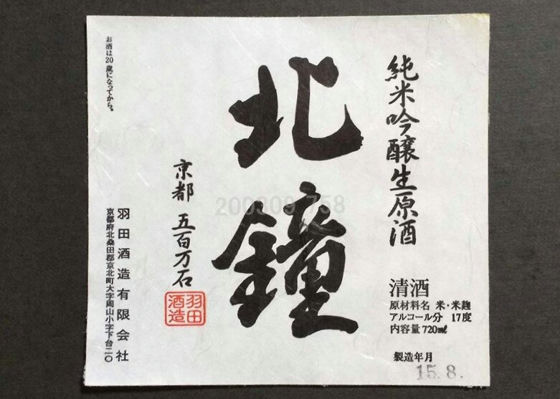 純米吟醸生原酒
北鐘
清酒
原材料名 米・米麹
アルコール分 17度
内容量720ml
製造年月
15.8.
京都 五百万石
羽田
酒造
羽田酒造有限会社
京都府北桑田郡京北町大字周山小字下台二〇
お酒は20歳になってから。